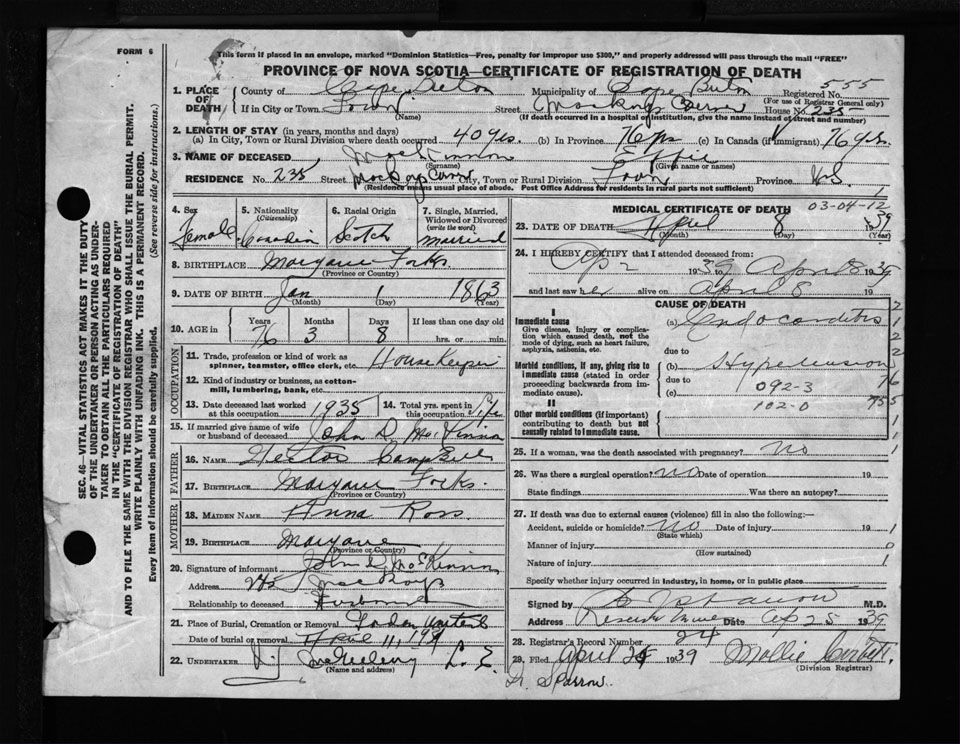 FORM 6
This form if placed in an envelope, marked "Dominion Statistics—Free, penalty for improper use $300," and properly addressed will pass through the mail "FREE"
PROVINCE OF NOVA SCOTIA—CERTIFICATE OF REGISTRATION OF DEATH
555
1. PLACE OF DEATH County of Cape Breton Municipality of Cape Breton Registered No.
(For use of Registrar General only)
If in City or Town Town Street Corner House No. 235
(Name) (If death occurred in a hospital or institution, give the name instead of street and number)
2. LENGTH OF STAY (in years, months and days)
(a) In City, Town or Rural Division where death occurred 40 yrs. (b) In Province 76 yrs (c) In Canada (if immigrant) 76 yrs.
3. NAME OF DECEASED MacKinnon Effie
(Surname) (Given name or names)
RESIDENCE No. 235 Street Corner City, Town or Rural Division Town Province N.S.
(Residence means usual place of abode. Post Office Address for residents in rural parts not sufficient)
4. Sex Female
5. Nationality (Citizenship) Canadian
6. Racial Origin Scotch
7. Single, Married, Widowed or Divorced (write the word) married
8. BIRTHPLACE Margaree Forks
(Province or Country)
9. DATE OF BIRTH Jan 1 1863
(Month) (Day) (Year)
10. AGE in Years 76 Months 3 Days 8 If less than one day old
hrs. or min.
OCCUPATION
11. Trade, profession or kind of work as spinner, teamster, office clerk, etc. House Keeper
12. Kind of industry or business, as cotton-mill, lumbering, bank, etc.
13. Date deceased last worked at this occupation 1935
14. Total yrs. spent in this occupation Life
15. If married give name of wife or husband of deceased John D. McKinnon
FATHER
16. NAME Hector Campbell
17. BIRTHPLACE Margaree Forks.
(Province or Country)
MOTHER
18. MAIDEN NAME Anna Ross
19. BIRTHPLACE Margaree
(Province or Country)
20. Signature of informant John D. McKinnon
Address
Relationship to deceased Husband
21. Place of Burial, Cremation or Removal
Date of burial or removal April 11, 1939
22. UNDERTAKER
(Name and address)
MEDICAL CERTIFICATE OF DEATH 03-04-12
23. DATE OF DEATH April 8 1939
(Month) (Day) (Year)
24. I HEREBY CERTIFY that I attended deceased from:
Apr 2 1939 to April 8 1939
and last saw her alive on April 8 19
CAUSE OF DEATH
I
Immediate cause
Give disease, injury or complication which caused death, not the mode of dying, such as heart failure, asphyxia, asthenia, etc.
(a) Endocarditis
due to
Morbid conditions, if any, giving rise to immediate cause (stated in order proceeding backwards from immediate cause.)
(b) Hypertension
due to
(c) 092-3
102-0
II
Other morbid conditions (if important) contributing to death but not causally related to immediate cause.
25. If a woman, was the death associated with pregnancy? No
26. Was there a surgical operation? no Date of operation 19
State findings Was there an autopsy?
27. If death was due to external causes (violence) fill in also the following:—
Accident, suicide or homicide? no Date of injury 19
(State which)
Manner of injury
(How sustained)
Nature of injury
Specify whether injury occurred in Industry, in home, or in public place
Signed by M.D.
Address Reserve Mines Date Ap 25 1939
28. Registrar's Record Number 24
29. Filed April 24 1939 Mollie Corbett
(Division Registrar)
Dr. Sparrow.
SEC. 46—VITAL STATISTICS ACT MAKES IT THE DUTY
OF THE UNDERTAKER OR PERSON ACTING AS UNDER-
TAKER TO OBTAIN ALL THE PARTICULARS REQUIRED
IN THE "CERTIFICATE OF REGISTRATION OF DEATH"
AND TO FILE THE SAME WITH THE DIVISION REGISTRAR WHO SHALL ISSUE THE BURIAL PERMIT.
WRITE PLAINLY WITH UNFADING INK. THIS IS A PERMANENT RECORD.
Every item of information should be carefully supplied. (See reverse side for instructions.)